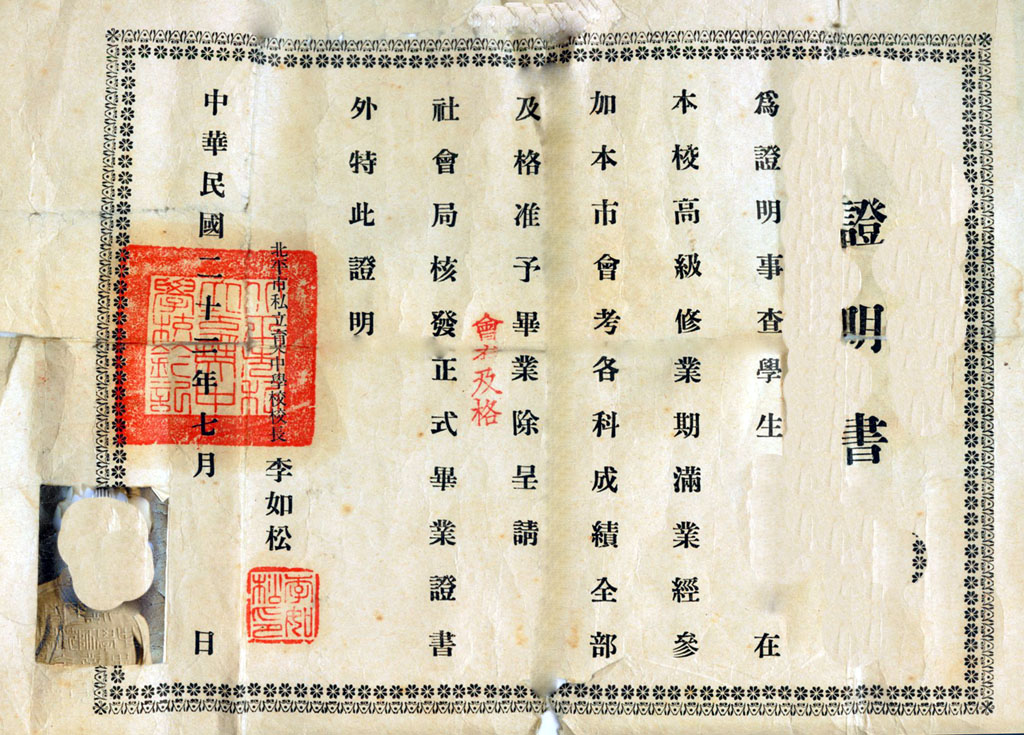 證明書
爲證明事查學生 在
本校高級修業期滿業經參
加本市會考各科成績全部
及格准予畢業除呈請
會考及格
社會局核發正式畢業證書
外特此證明
北平市私立育英中學校校長 李如松
李如松印
中華民國二十三年七月 日